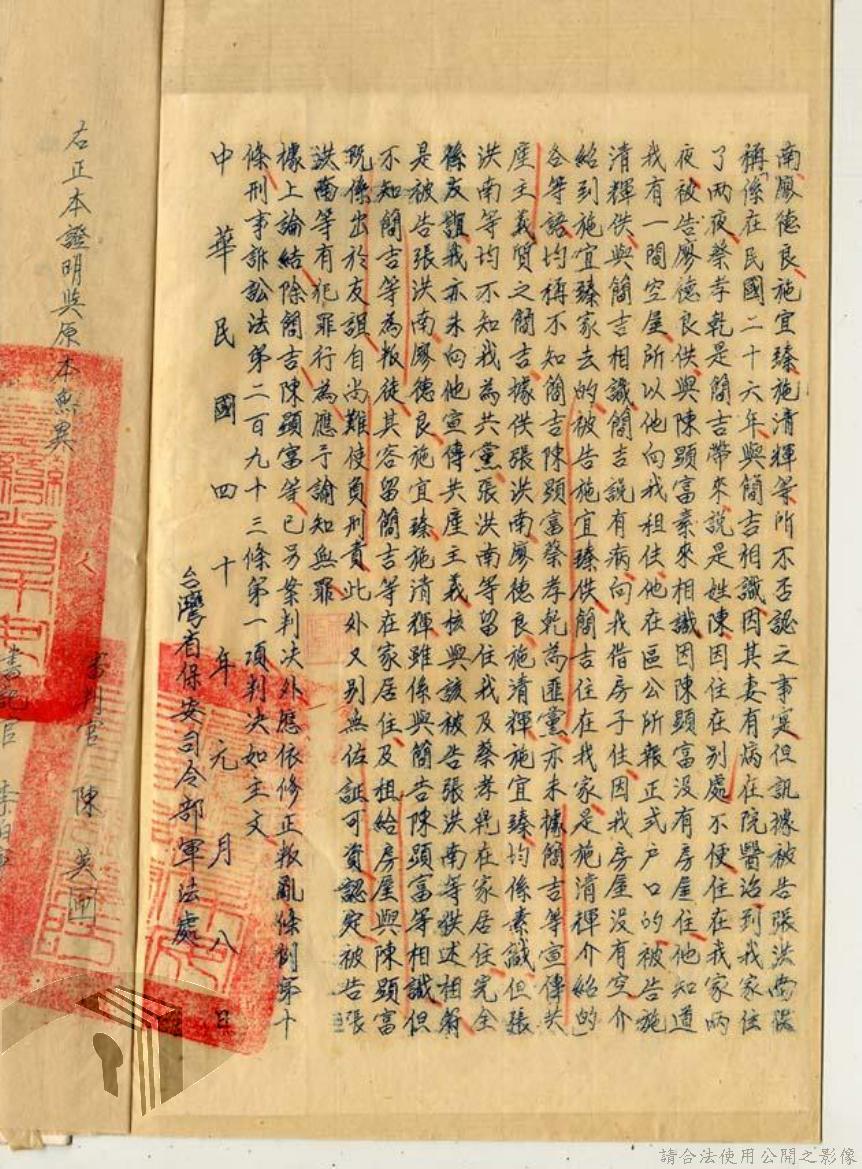 南廖德良施宜臻施清輝等所不否認之事寔但訊據被告張洪南供
稱「係在民國二十六年與簡吉相識因其妻有病在院醫治到我家住
了兩夜蔡孝乾是簡吉帶來說是姓陳因住在別處不便住在我家兩
夜被告廖德良供與陳顕富素來相識因陳顕富没有房屋住他知道
我有一間空屋所以他向我租住他在區公所報正式户口的被告施
清輝供與簡吉相識簡吉説有病向我借房子住因我房屋没有空介
紹到施宜臻家去的被告施宜臻供簡吉住在我家是施清輝介紹的」
各等語均稱不知簡吉陳顕富蔡孝乾為匪黨亦未據簡吉等宣傳共
產主義質之簡吉據供張洪南廖德良施清輝施宜臻均係素識但張
洪南等均不知我為共黨張洪南等留住我及蔡孝乾在家居住完全
係友誼我亦未向他宣傳共產主義核與該被告張洪南等供述相符
是被告張洪南廖德良施宜臻施清輝雖係與簡吉陳顕富等相識但
不知簡吉等為叛徒其容留簡吉等在家居住及租給房屋與陳顕富
既係出於友誼自尚難使負刑責此外又別無佐証可資認定被告張
洪南等有犯罪行為應予諭知無罪
據上論結除簡吉陳顕富等已另案判決外應依修正叛亂條例第十
條刑事訴訟法第二百九十三條第一項判決如主文
中華民國四十年元月八日
台灣省保安司令部軍法處
審判官 陳英
右正本證明與原本無異
書記官 李
請合法使用公開之影像